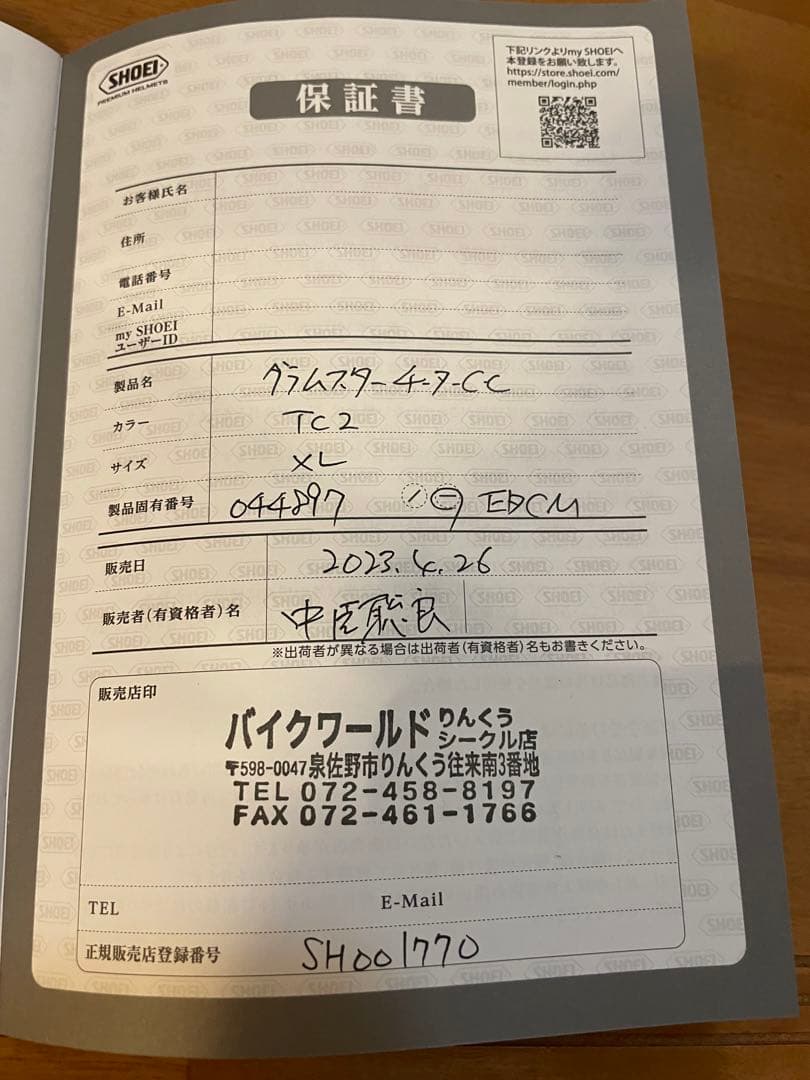 SHOEI
PREMIUM HELMETS
保証書
下記リンクよりmy SHOEIへ
本登録をお願い致します。
https://store.shoei.com/
member/login.php
お客様氏名
住所
電話番号
E-Mail
my SHOEI
ユーザーID
製品名 グラムスターチーターCC
カラー TC2
サイズ XL
製品固有番号 044897
販売日 2023.4.26
販売者(有資格者)名 中臣聡良
※出荷者が異なる場合は出荷者(有資格者)名もお書きください。
販売店印
バイクワールド りんくう
シークル店
〒598-0047泉佐野市りんくう往来南3番地
TEL 072-458-8197
FAX 072-461-1766
TEL E-Mail
正規販売店登録番号 SH001770